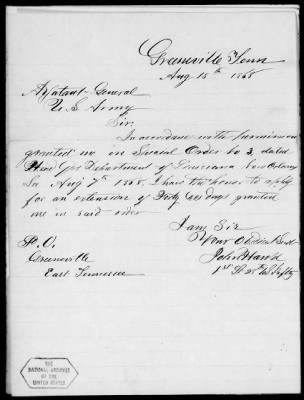 Greeneville Tenn
Aug 15th 1868
Adjutant General
U.S. Army
Sir
In accordance with permission
granted me in Special Order No 3, dated
Head Qrs Department of Louisiana New Orleans
La Aug 7th 1868, I have the honor to apply
for an extension of days granted
me in said order
I am Sir
Your Obedient Servt
John
1st Lt U.S. Infty
P.O.
Greeneville
East Tennessee
THE
NATIONAL ARCHIVES
OF THE
UNITED STATES